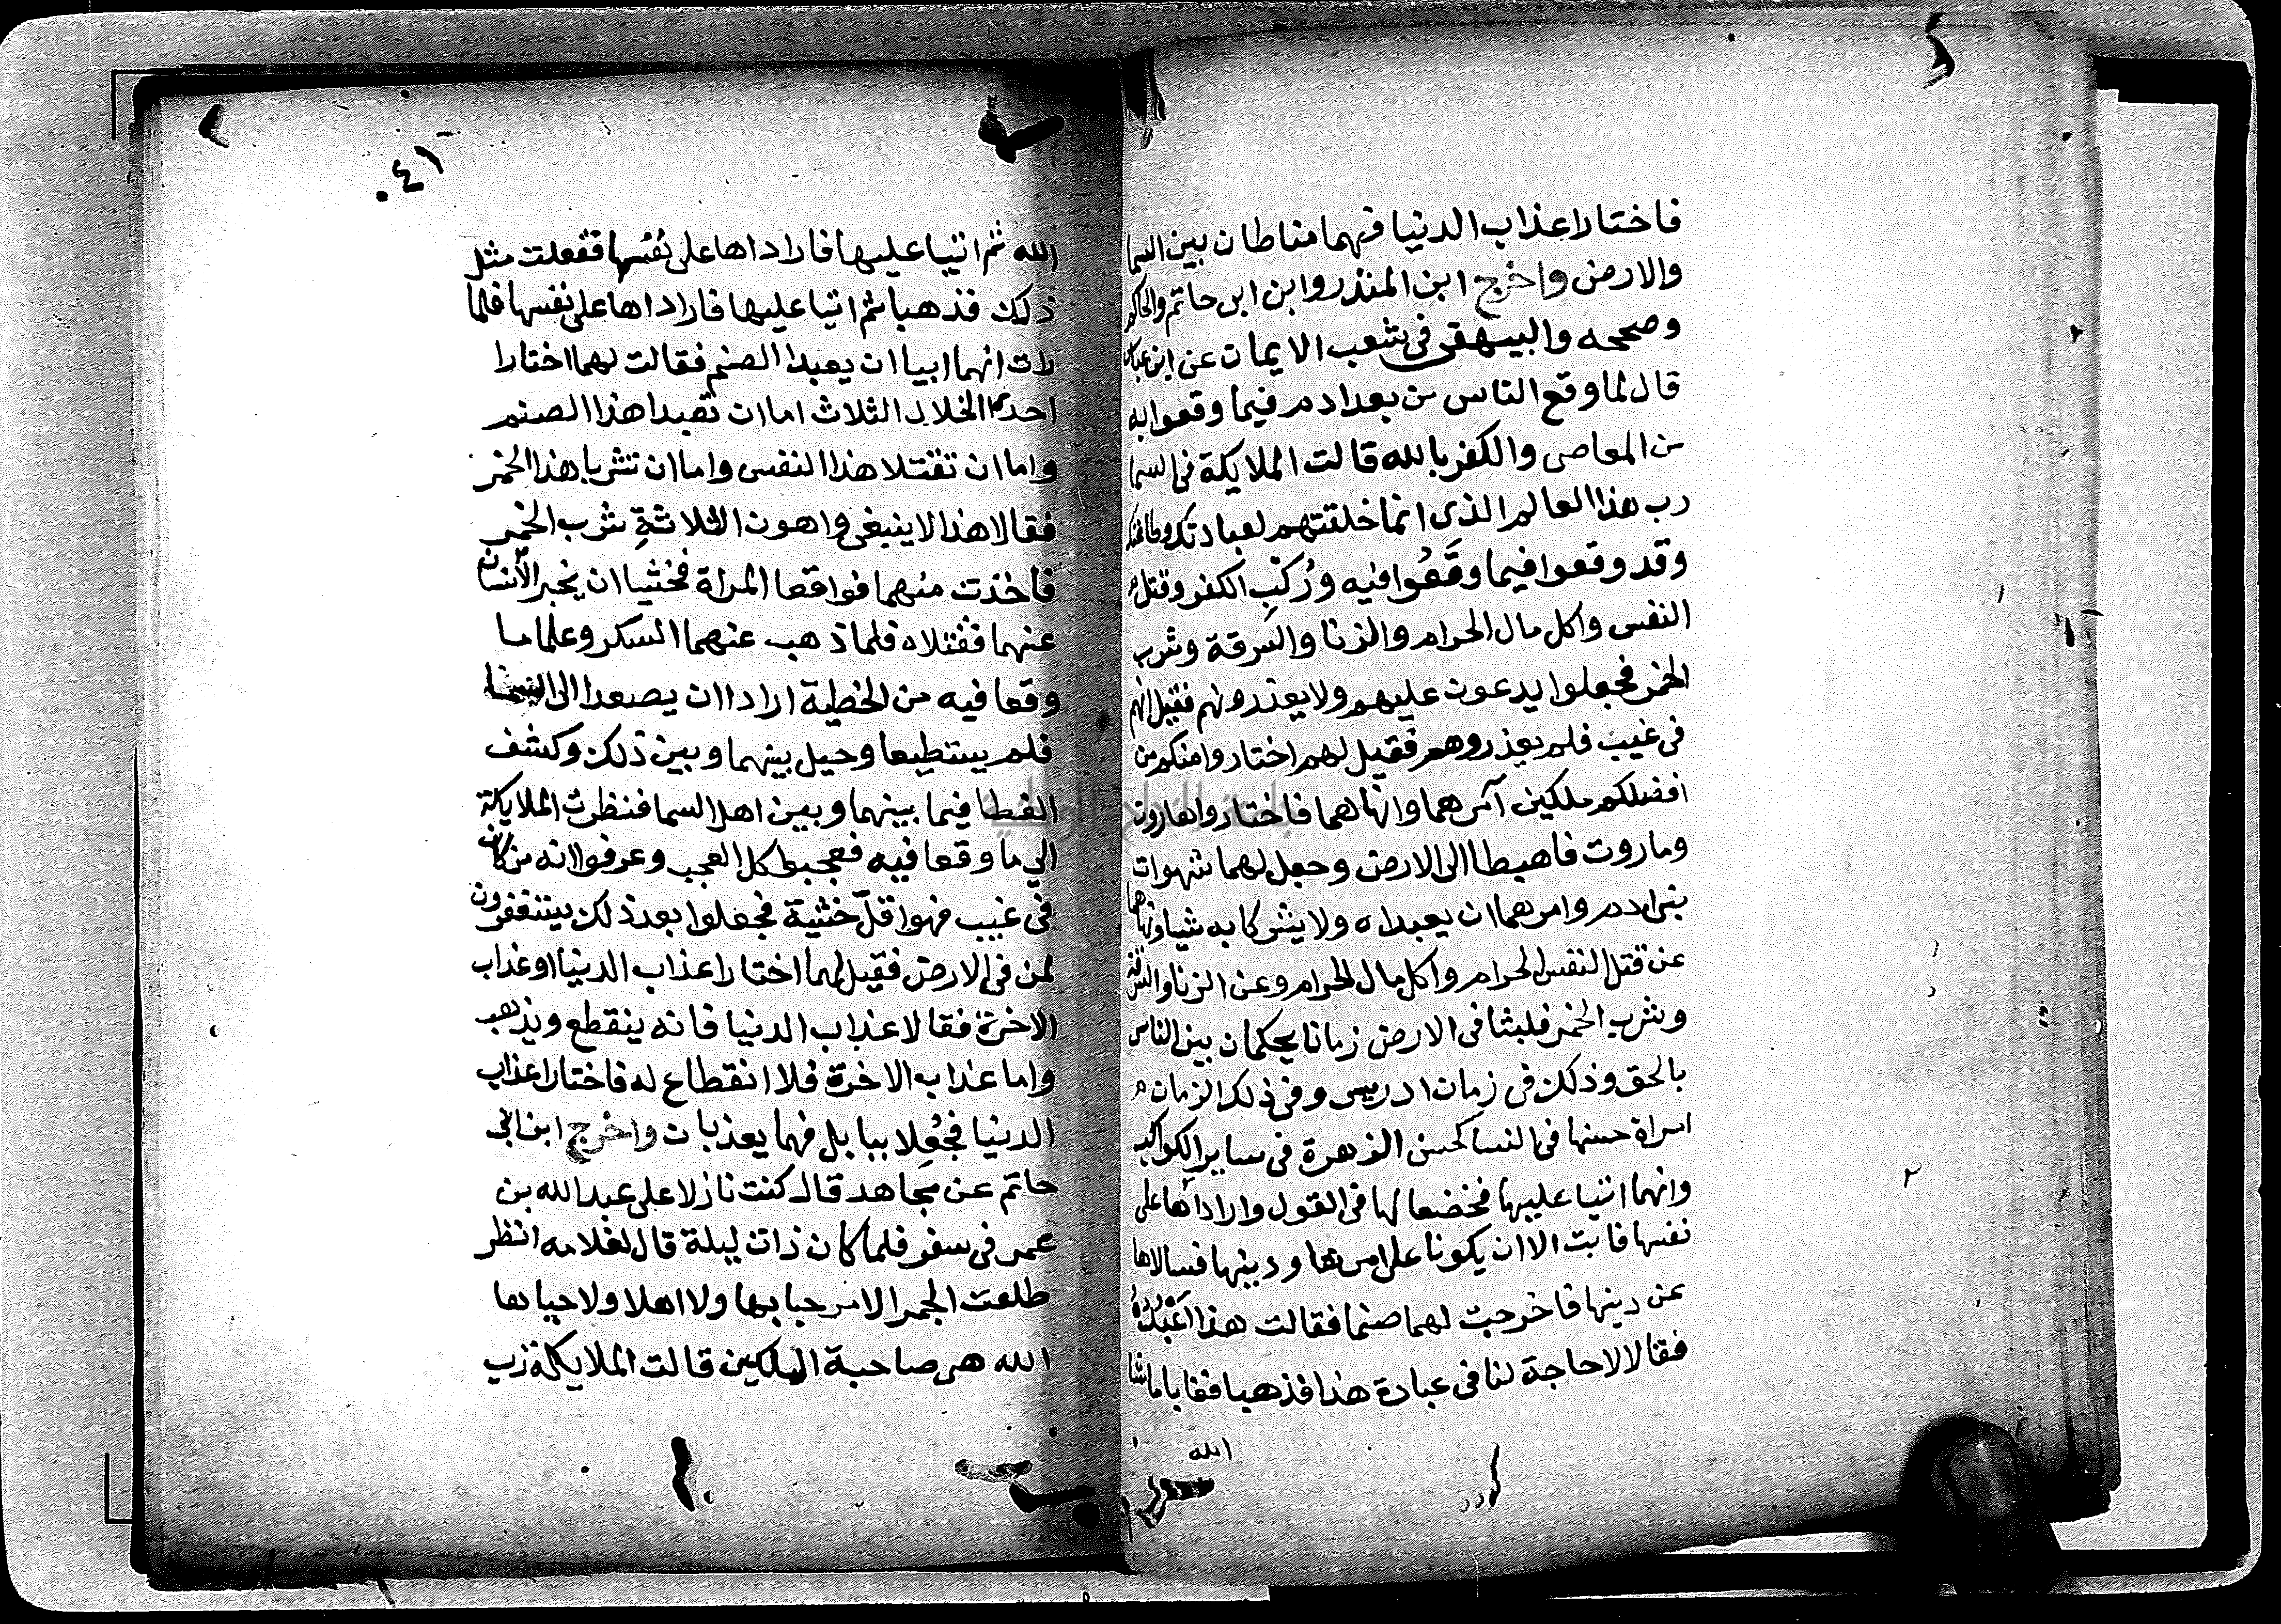 فاختارا عذاب الدنيا فهما مناطان بين السما
والارض واخرج ابن المنذر وابن ابى حاتم والحاكم
وصححه والبيهقى فى شعب الايمان عن ابن عباس
قال لما وقع الناس من بعد ادم فيما وقعوا به
من المعاصى والكفر بالله قالت الملايكة فى السما
رب هذا العالم الذى انما خلقتهم لعبادتك وطاعتك
وقد وقعوا فيما وقعوا فيه وركب الكفر وقتل
النفس واكل مال الحرام والزنا والسرقة وشرب
الخمر فجعلوا يدعون عليهم ولا يعذرونهم فقيل انهم
فى غيب فلم يعذروهم فقيل لهم اختاروا منكم من
افضلكم ملكين آمرهما وانهاهما فاختاروا هاروت
وماروت فاهبطا الى الارض وجعل لهما شهوات
بنى ادم وامرهما ان يعبداه ولا يشركا به شيا ونهاهما
عن قتل النفس الحرام واكل مال الحرام وعن الزنا والسرقة
وشرب الخمر فلبثا فى الارض زمانا يحكمان بين الناس
بالحق وذلك فى زمان ادريس وفى ذلك الزمان
امراة حسنها فى النسا كحسن الزهرة فى ساير الكواكب
وانهما اتيا عليها فخضعا لها فى القول وارادها على
نفسها فابت الا ان يكونا على امرها ودينها فسالاها
عن دينها فاخرجت لهما صنما فقالت هذا اعبده
فقالا لا حاجة لنا فى عبادة هذا فذهبا فغابا ما شا
الله
٤١
الله ثم اتيا عليها فاراداها على نفسها ففعلت مثل
ذلك فذهبا ثم اتيا عليها فاراداها على نفسها فلما
رات انهما ابيا ان يعبدا الصنم فقالت لهما اختارا
احد الخلال الثلاث اما ان تعبدا هذا الصنم
واما ان تقتلا هذا النفس واما ان تشربا هذا الخمر
فقالا هذا لا ينبغى واهون الثلاثة شرب الخمر
فاخذت منهما فواقعا المراة فخشيا ان يخبر الانسان
عنهما فقتلاه فلما ذهب عنهما السكر وعلما ما
وقعا فيه من الخطية ارادا ان يصعدا الى السما
فلم يستطيعا وحيل بينهما وبين ذلك وكشف
الغطا فيما بينهما وبين اهل السما فنظرت الملايكة
الى ما وقعا فيه فعجبوا كل العجب وعرفوا انه من كان
فى غيب فهو اقل خشية فجعلوا بعد ذلك يستغفرون
لمن فى الارض فقيل لهما اختارا عذاب الدنيا او عذاب
الاخرة فقالا عذاب الدنيا فانه ينقطع ويذهب
واما عذاب الاخرة فلا انقطاع له فاختارا عذاب
الدنيا فجعلا ببابل فهما يعذبان واخرج ابن ابى
حاتم عن مجاهد قال كنت نازلا على عبد الله بن
عمر فى سفر فلما كان ذات ليلة قال لغلامه انظر
طلعت الحمرا لا مرحبا بها ولا اهلا ولا حياها
الله هى صاحبة الملكين قالت الملايكة رب